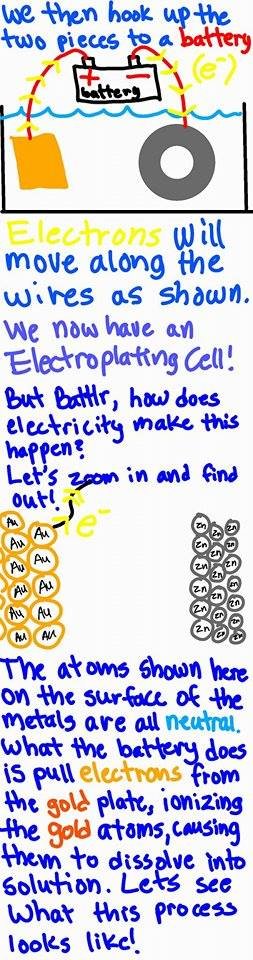 We then hook up the
two pieces to a battery
(e⁻)
+ −
battery
Electrons will
move along the
wires as shown.
We now have an
Electroplating Cell!
But Battlr, how does
electricity make this
happen?
Let's zoom in and find
out!
e⁻
Au
Au Au
Au Au
Au Au
Au Au
Au Au
Zn Zn Zn
Zn Zn Zn
Zn Zn Zn
Zn Zn Zn
Zn Zn Zn
Zn Zn Zn
The atoms shown here
on the surface of the
metals are all neutral.
What the battery does
is pull electrons from
the gold plate, ionizing
the gold atoms, causing
them to dissolve into
solution. Lets see
what this process
looks like!